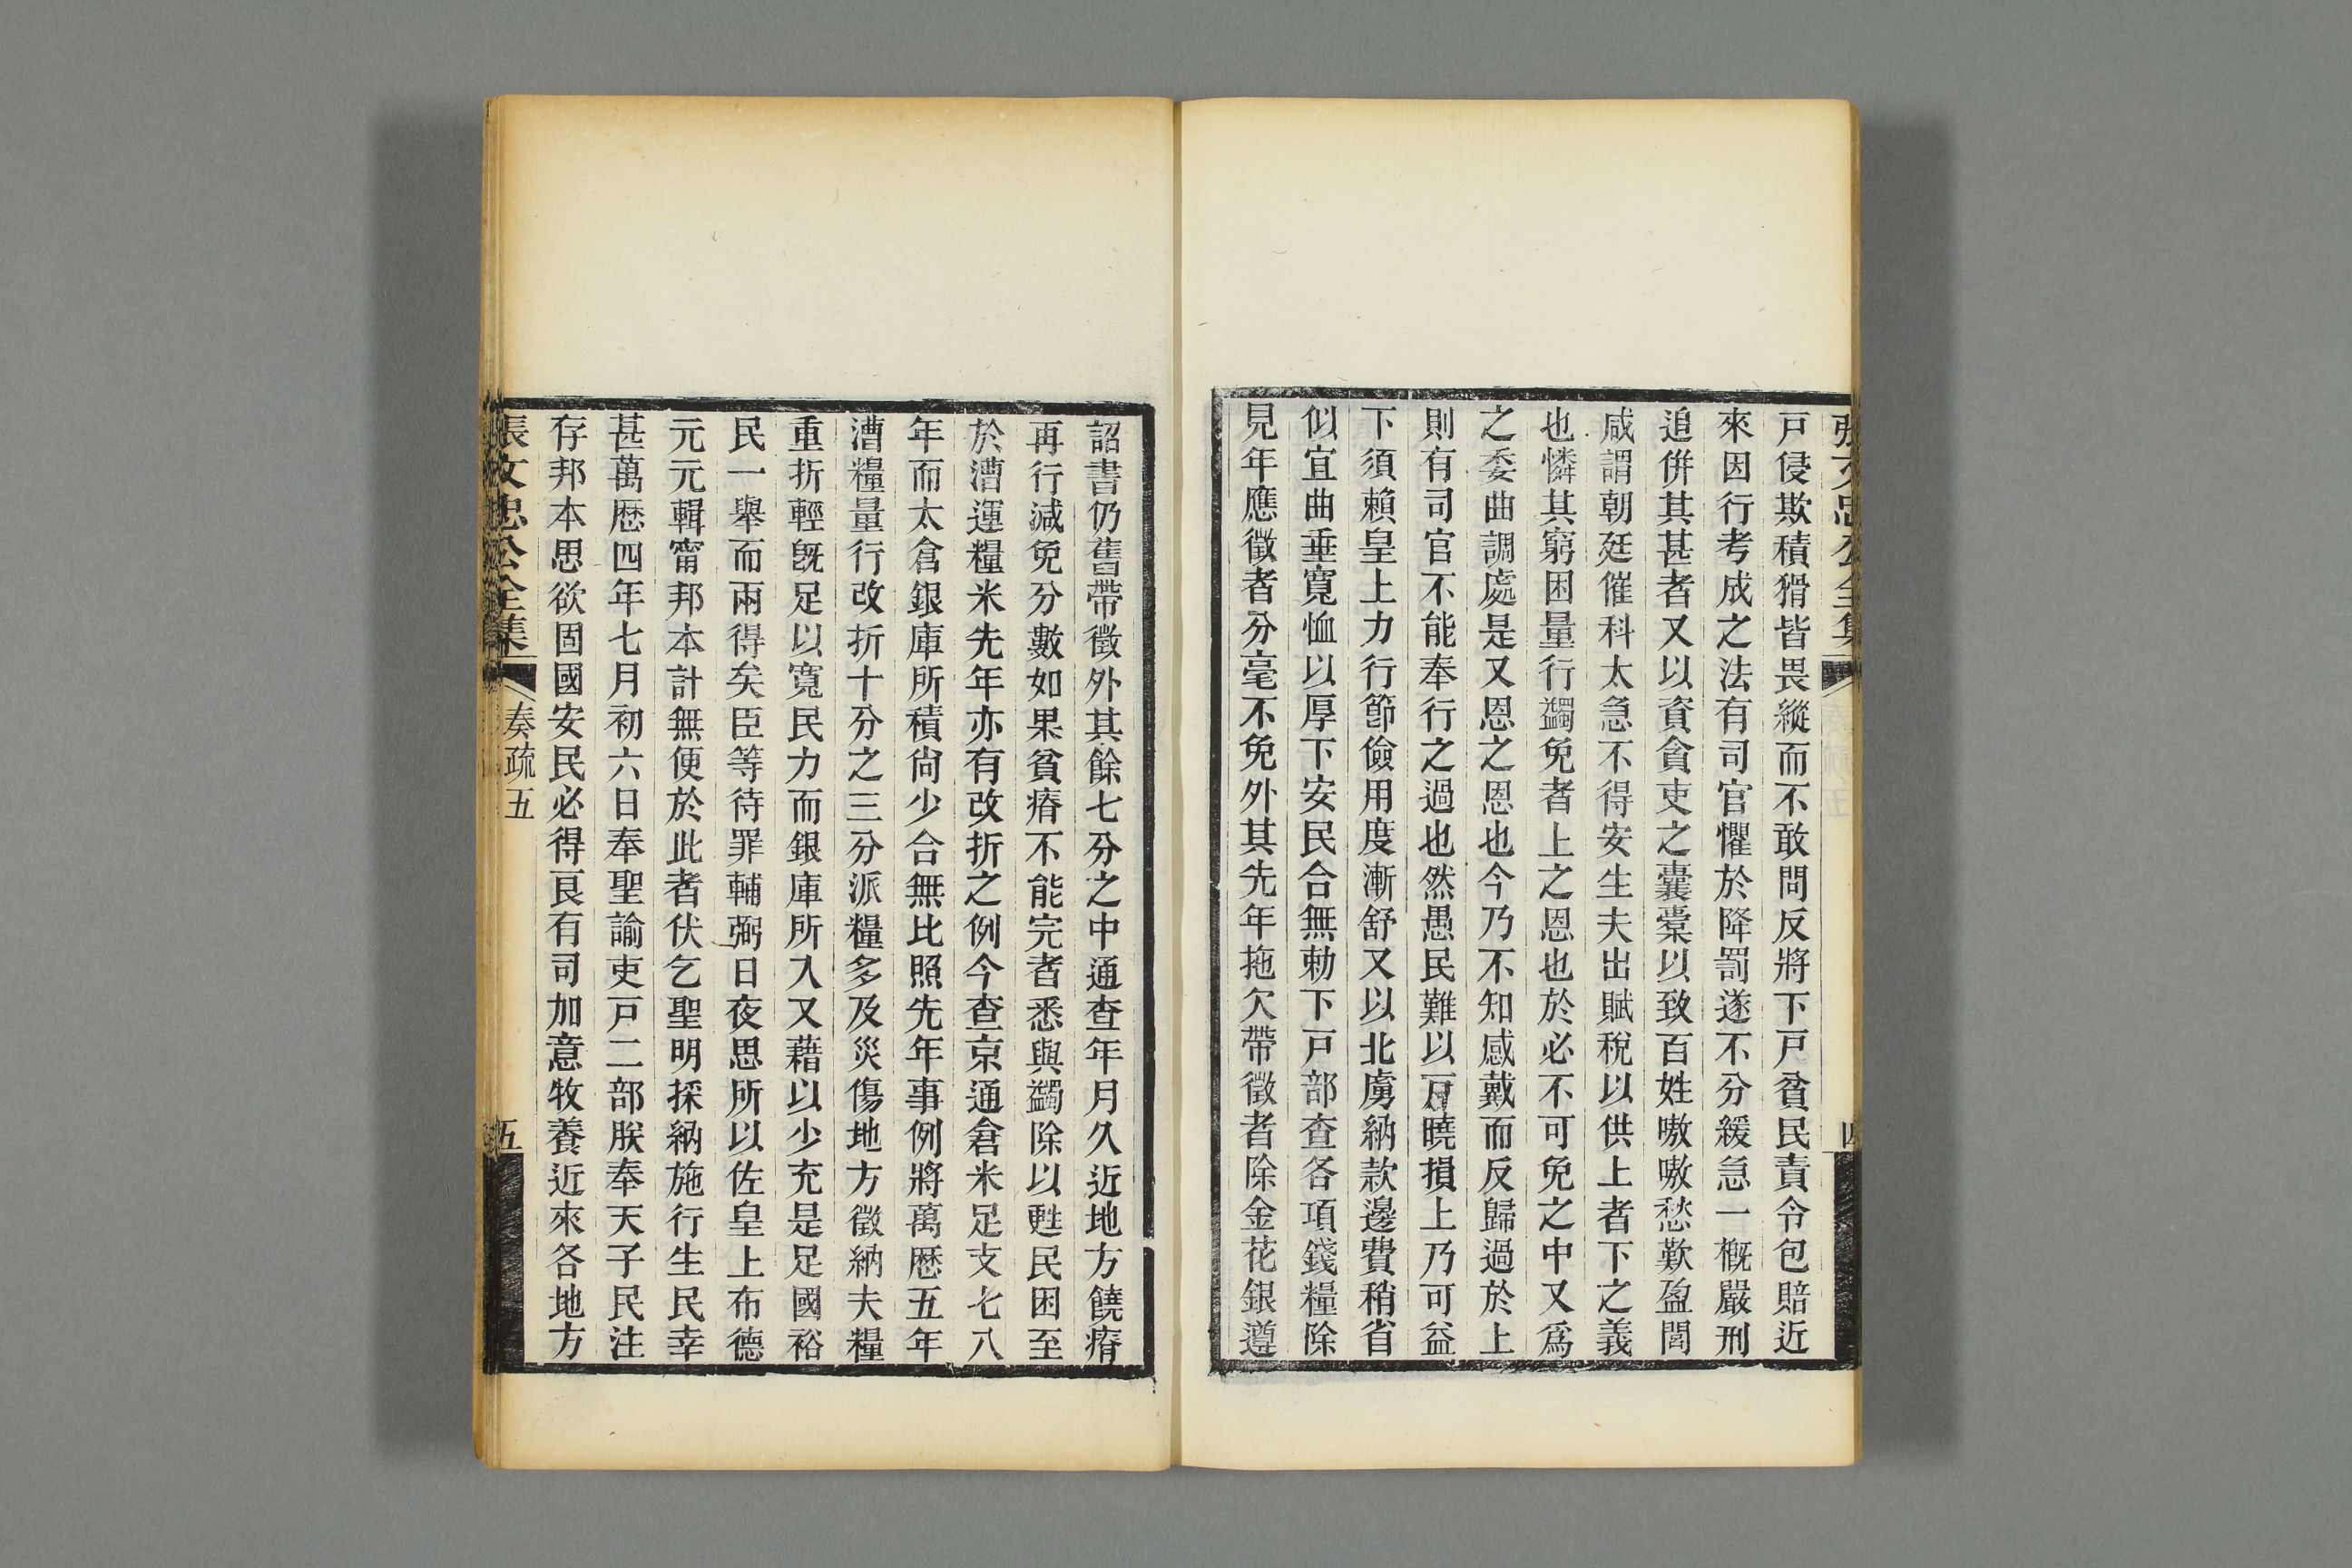 張文忠公全集
四
戸侵欺積猾皆畏縱而不敢問反將下戸貧民責令包賠近
來因行考成之法有司官懼於降罰遂不分緩急一概嚴刑
追併其甚者又以資貪吏之囊橐以致百姓嗷嗷愁歎盈閭
咸謂朝廷催科太急不得安生夫出賦稅以供上者下之義
也憐其窮困量行蠲免者上之恩也於必不可免之中又爲
之委曲調處是又恩之恩也今乃不知感戴而反歸過於上
則有司官不能奉行之過也然愚民難以戸曉損上乃可益
下須賴皇上力行節儉用度漸舒又以北虜納款邊費稍省
似宜曲垂寬恤以厚下安民合無勅下戸部查各項錢糧除
見年應徵者分毫不免外其先年拖欠帶徵者除金花銀遵
詔書仍舊帶徵外其餘七分之中通查年月久近地方饒瘠
再行減免分數如果貧瘠不能完者悉與蠲除以甦民困至
於漕運糧米先年亦有改折之例今查京通倉米足支七八
年而太倉銀庫所積尙少合無比照先年事例將萬歷五年
漕糧量行改折十分之三分派糧多及災傷地方徵納夫糧
重折輕旣足以寬民力而銀庫所入又藉以少充是足國裕
民一舉而兩得矣臣等待罪輔弼日夜思所以佐皇上布德
元元輯甯邦本計無便於此者伏乞聖明採納施行生民幸
甚萬歷四年七月初六日奉聖諭吏戸二部朕奉天子民注
存邦本思欲固國安民必得良有司加意牧養近來各地方
張文忠公全集
奏疏五
五